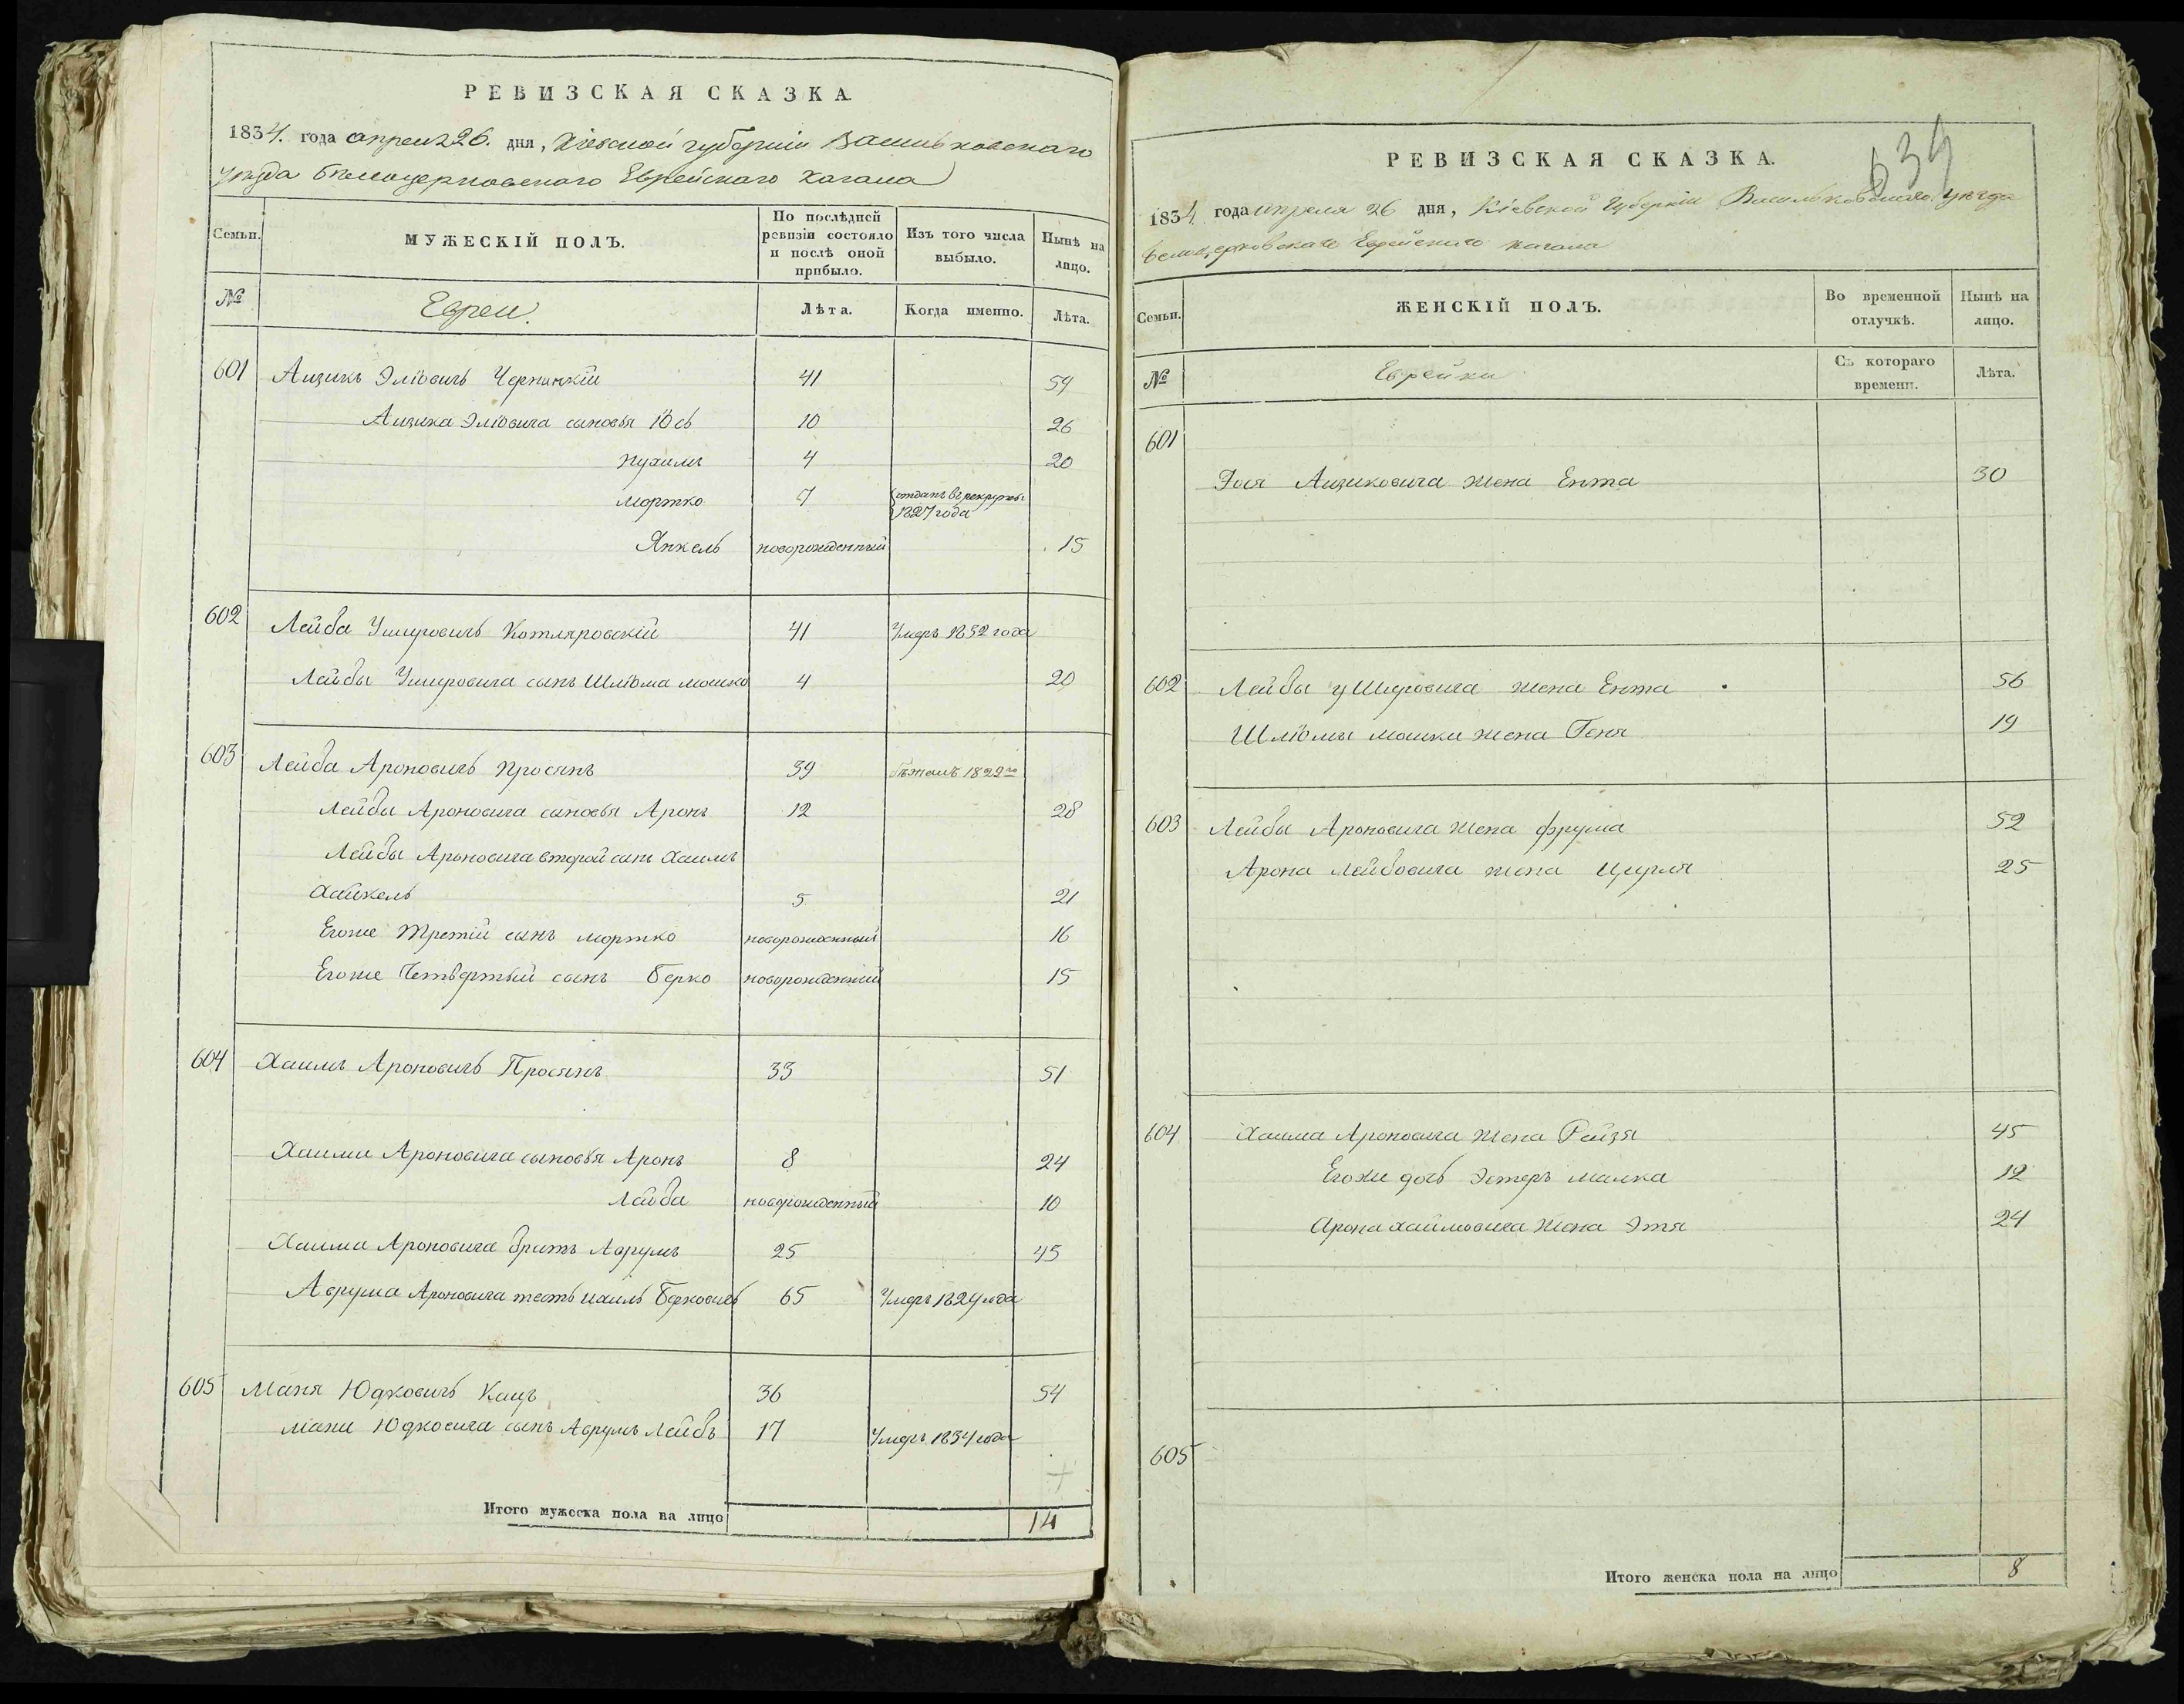 РЕВИЗСКАЯ СКАЗКА.
1834. года апреля 26. дня, Кіевской губерніи Васильковскаго
уезда белоцерковскаго Еврейскаго Кагала
Семьи.
МУЖЕСКІЙ ПОЛЪ.
По послѣдней ревизіи состояло и послѣ оной прибыло.
Изъ того числа выбыло.
Нынѣ на лицо.
№
Евреи.
Лѣта.
Когда именно.
Лѣта.
601 Аизикъ Эліовичъ 41 54
Аизика Эліовича сыновья Іось 10 26
Нухимъ 4 20
Мортко 7 отданъ въ рекруты 1827 года
Янкель новорожденный 15
602 Лейба Ушеровичъ Котляровскій 41 Умеръ 1832 года
Лейбы Ушеровича сынъ Шліома мошко 4 20
603 Лейба Ароновичъ Просянъ 39 бежалъ 1829го
Лейбы Ароновича сыновья Аронъ 12 28
Лейбы Ароновича второй сынъ Хаимъ
Хайкель 5 21
Егоже Третій сынъ мортко новорожденный 16
Егоже Четвертый сынъ Берко новорожденный 15
604 Хаимъ Ароновичъ Просянъ 33 51
Хаима Ароновича сыновья Аронъ 8 24
Лейба новорожденный 10
Хаима Ароновича братъ Аврумъ 25 45
Аврума Ароновича тесть Берковичъ 65 Умеръ 1824 года
605 Маня Юдковичъ Кацъ 36 54
мани Юдковича сынъ Аврумъ Лейбъ 17 Умеръ 1834 года
Итого мужеска пола на лицо 14
634
РЕВИЗСКАЯ СКАЗКА.
1834 года апреля 26 дня, Кіевской Губерніи Васильковскаго уезда
белоцерковскаго Еврейскаго кагала
Семьи.
ЖЕНСКІЙ ПОЛЪ.
Во временной отлучкѣ.
Нынѣ на лицо.
№
Еврейки
Съ котораго времени.
Лѣта.
601
Іося Аизиковича жена Ента 30
602 Лейбы Ушеровича жена Ента 56
Шліомы мошки жена Геня 19
603 Лейбы Ароновича жена фрума 52
Арона Лейбовича жена Цирля 25
604 Хаима Ароновича жена Рейзя 45
Егоже дочь Эстеръ малка 12
Арона хаимовича жена Этя 24
605
Итого женска пола на лицо 8